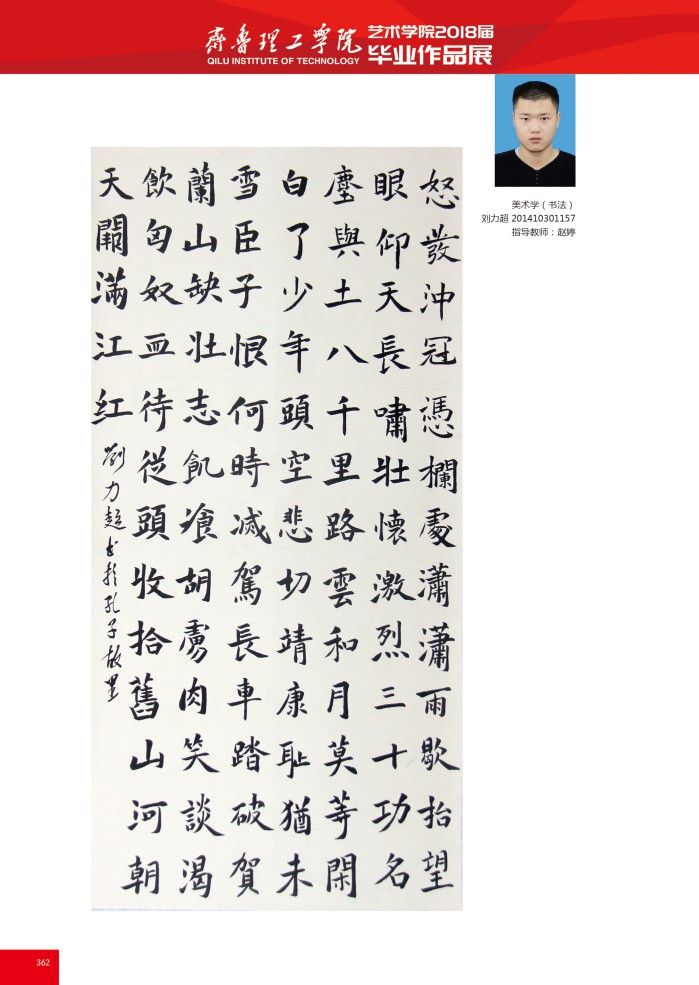 齊魯理工學院
QILU INSTITUTE OF TECHNOLOGY
艺术学院2018届
毕业作品展
美术学（书法）
刘力超 201410301157
指导教师：赵婷
怒發沖冠憑欄處瀟瀟雨歇抬望
眼仰天長嘯壯懷激烈三十功名
塵與土八千里路雲和月莫等閑
白了少年頭空悲切靖康耻猶未
雪臣子恨何時滅駕長車踏破賀
蘭山缺壯志飢飡胡虜肉笑談渴
飲匈奴血待從頭收拾舊山河朝
天闕滿江红
劉力超书於孔子故里
362